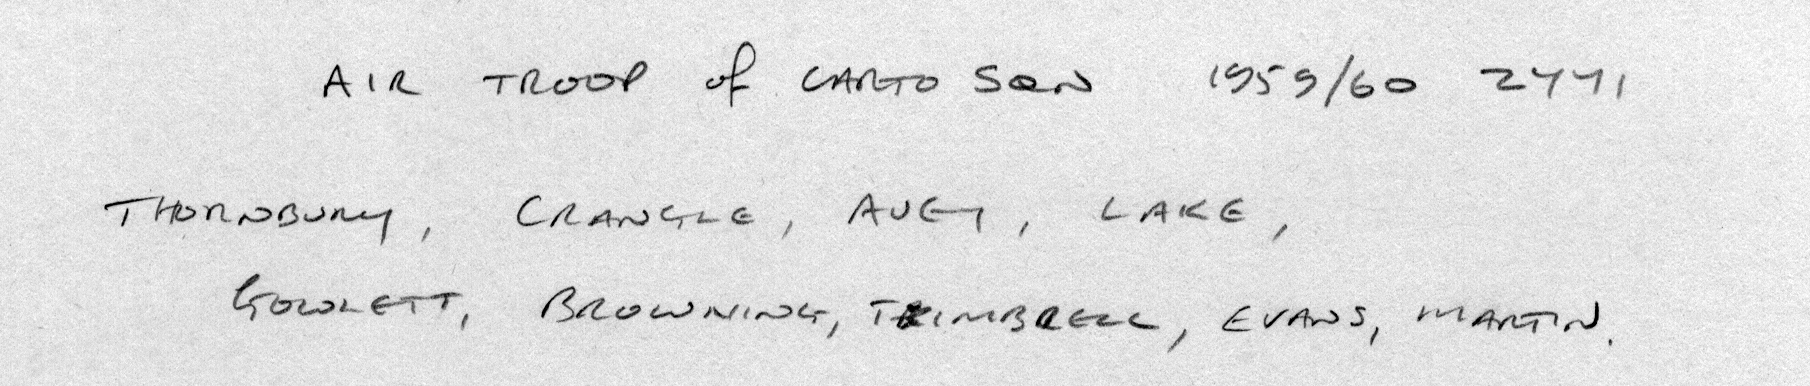 AIR TROOP of CARTO SQN 1959/60 2441
THORNBURY, CRANGLE, AVEY, LAKE,
GOWLETT, BROWNING, TRIMBRELL, EVANS, MARTIN.